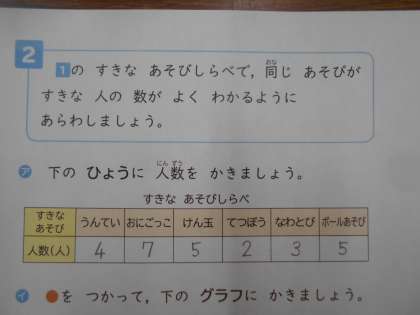 2
1の すきな あそびしらべで，同じ あそびが
すきな 人の 数が よく わかるように
あらわしましょう。
ア 下の ひょうに 人数を かきましょう。
すきな あそびしらべ
すきな あそび うんてい おにごっこ けん玉 てつぼう なわとび ボールあそび
人数(人) 4 7 5 2 3 5
イ ●を つかって，下の グラフに かきましょう。